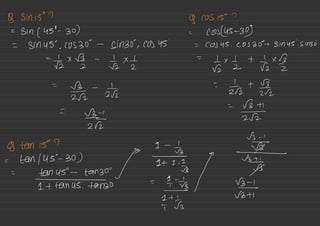 Q sin15° ?
= Sin (45° - 30)
= sin45°. cos30° - sin30°. cos 45
= 1/√2 × √3/2 - 1/√2 × 1/2
= √3/2√2 - 1/2√2
= √3-1/2√2
Q cos15° ?
= cos[45-30]
= cos45. cos30 + sin45. sin30
= 1/√2 × 1/2 + 1/√2 × √3/2
= 1/2√2 + √3/2√2
= √3+1/2√2
Q tan 15° ?
= tan(45-30)
= tan45° - tan30/1 + tan45. tan30
1 - 1/√3
1 + 1.1/√3
= 1/1 - 1/√3
1/1 + 1/√3
√3-1/√3
√3+1/√3
√3-1
√3+1